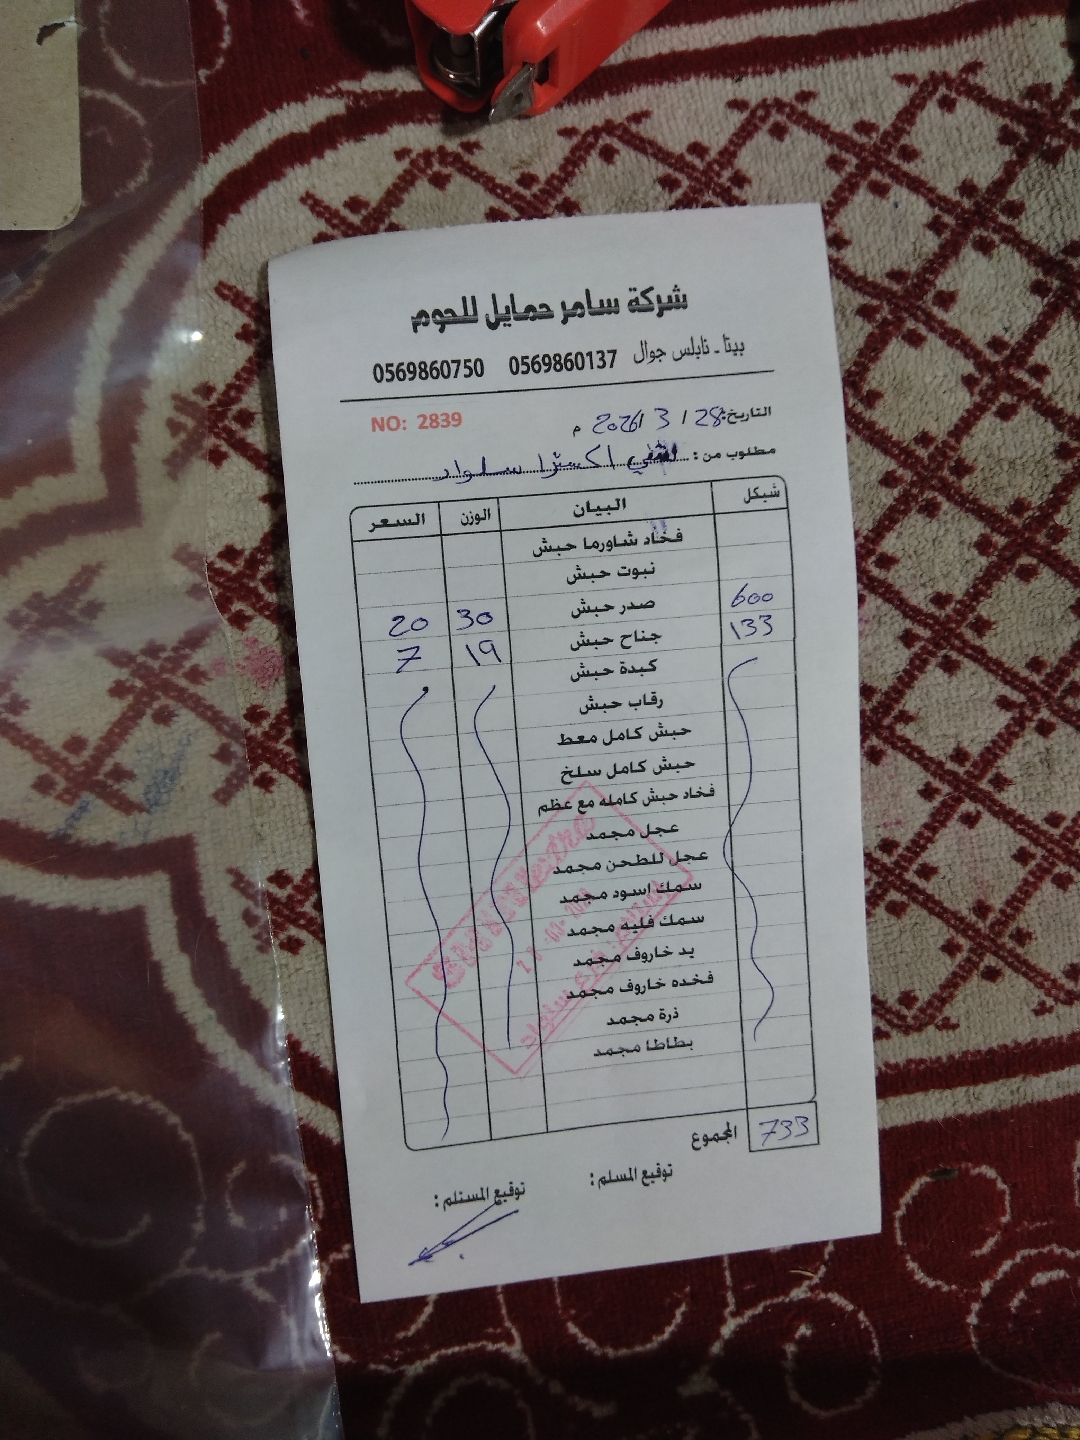 شركة سامر حمايل للحوم
بيتا - نابلس جوال 0569860137 0569860750
NO: 2839
التاريخ: 28 / 3 / 2026 م
مطلوب من : اكسترا سلواد
شيكل البيان الوزن السعر
فخاد شاورما حبش
نبوت حبش
600 صدر حبش 30 20
133 جناح حبش 19 7
كبدة حبش
رقاب حبش
حبش كامل معط
حبش كامل سلخ
فخاد حبش كامله مع عظم
عجل مجمد
عجل للطحن مجمد
سمك اسود مجمد
سمك فليه مجمد
يد خاروف مجمد
فخده خاروف مجمد
ذرة مجمد
بطاطا مجمد
المجموع 733
توقيع المسلم :
توقيع المستلم :